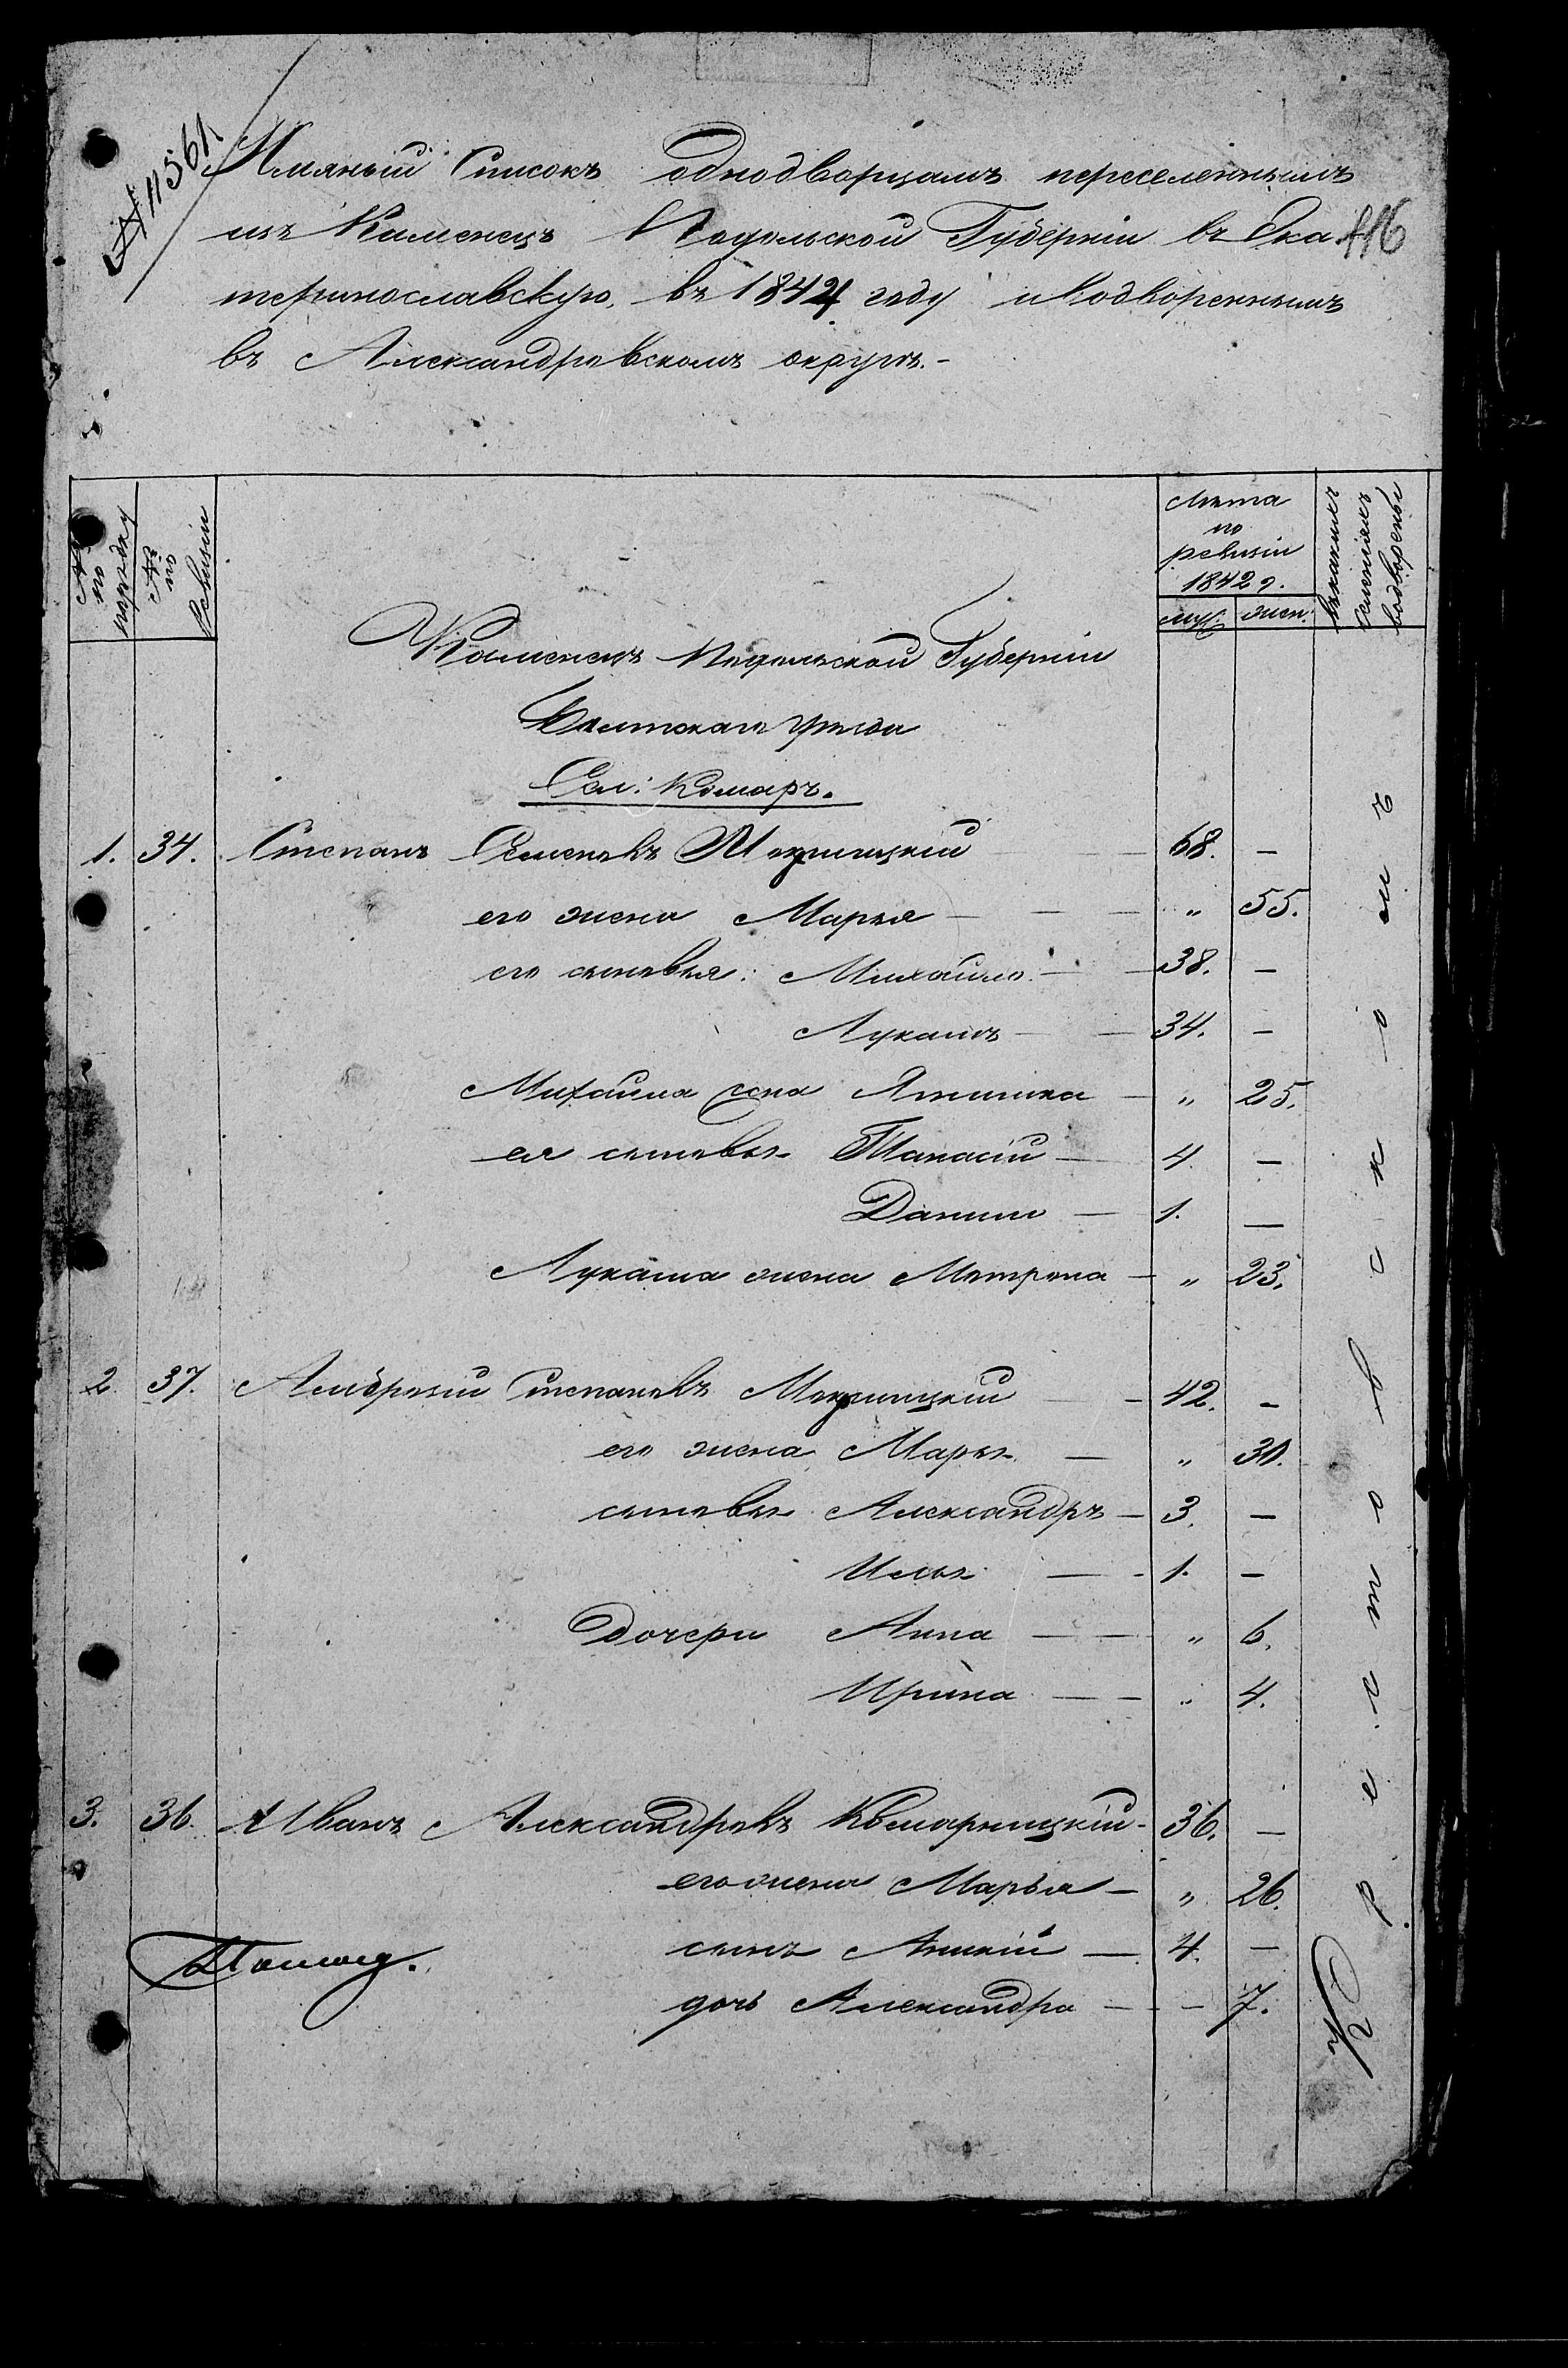 № 11561
Имяный Списокъ однодворцамъ переселеннымъ
изъ Каменецъ Подольской Губерніи въ Ека-
116
теринославскую, въ 1844 году и водвореннымъ
въ Александровскомъ округѣ.-
№ по порядку
№ по Ревизіи
Лѣта
по
ревизіи
1842 г.
муж. жен.
въ какихъ
селеніяхъ
водворены
Каменецъ Подольской Губерніи
Балтскаго уѣзда
Сел: Комаръ.
1. 34. Степанъ Семеновъ 68. -
его жена Марья — — — " 55.
его сыновья: Михайло — 38. -
Лукашъ — — 34. -
Михайла жена — " 25.
ея сыновья Танасій — 4. —
Данило — 1. —
Лукаша жена Мотрона — " 23.
2. 37. Амброзій Степановъ — 42. -
его жена Марья — " 30.
сыновья Александръ — 3. —
Илья — - 1. —
Дочери Анна — — " 6.
Ирина — — " 4.
3. 36. Иванъ Александровъ Комарницкій - 36. —
его жена Марья — " 26.
сынъ — 4. —
дочь Александра — - — 7.